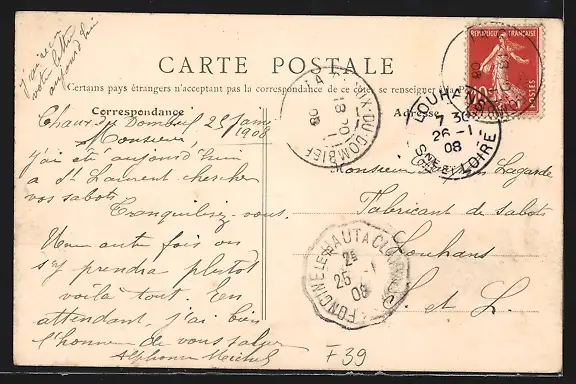 J'ai reçu
votre lettre
aujourd'hui
RÉPUBLIQUE FRANÇAISE
POSTES
10
CARTE POSTALE
Certains pays étrangers n'acceptant pas la correspondance de ce côté, se renseigner à la
Correspondance
Adresse
Chaux du Dombief 25 Janv
1908
Monsieur,
j'ai été aujourd'hui
a St. Laurent chercher
vos sabots
Tranquilisez-vous.
Une autre fois on
s'y prendra plutot
voilà tout. En
attendant, j'ai bien
l'honneur de vous saluer
Alphonse Michel
Monsieur Lagarde
Fabricant de sabots
Louhans
S. et L.
LA CHAUX-DU-DOMBIEF
08
LOUHANS
7 30
26 - 1
08
SNE-ET-LOIRE
FONCINE-LE-HAUT A CLAIRVAUX
2E
25 1
08
F39